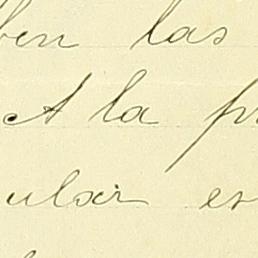 ben las
A la p
ular es